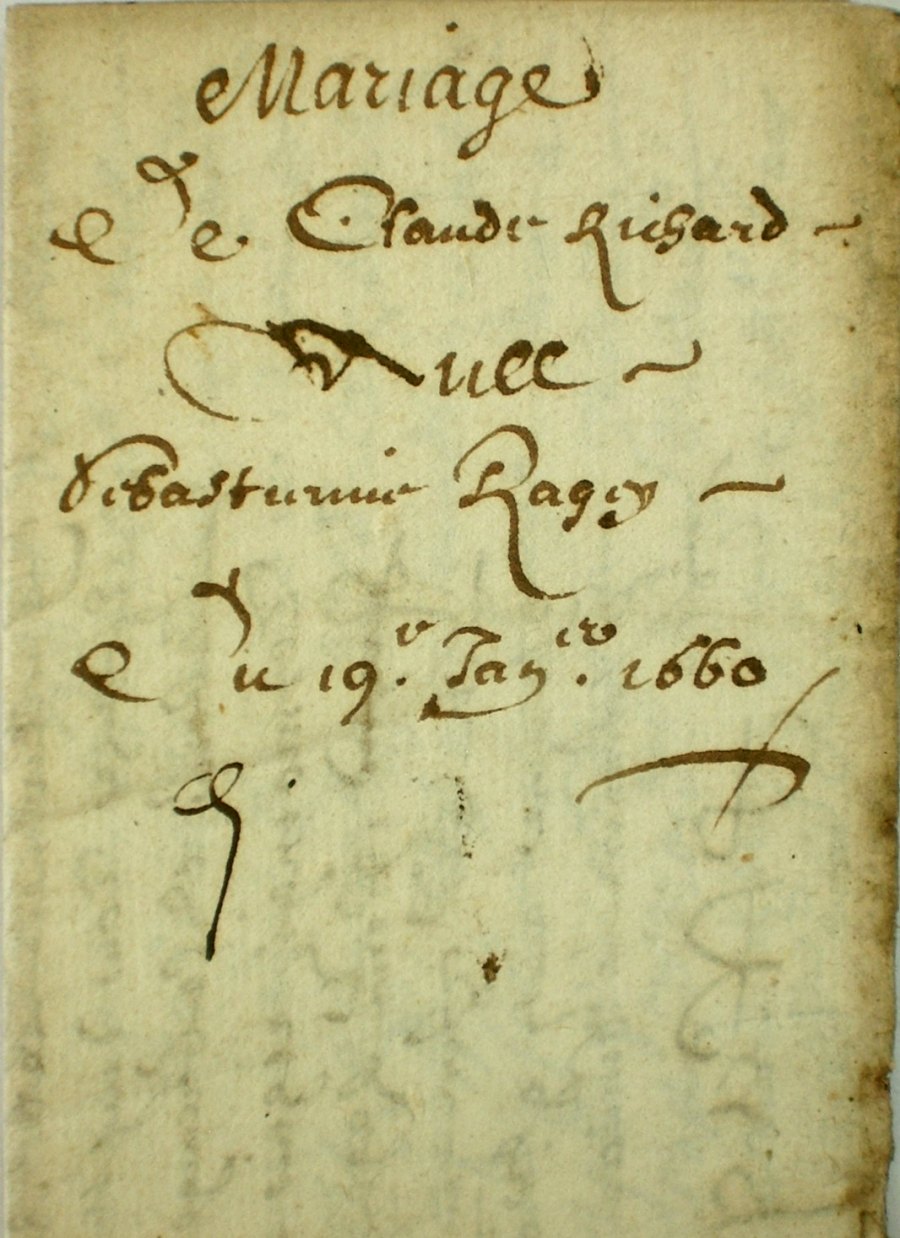 Mariage
De Claude Richard
Auec
Sebastienne Ragey
Du 19e. Janer. 1660